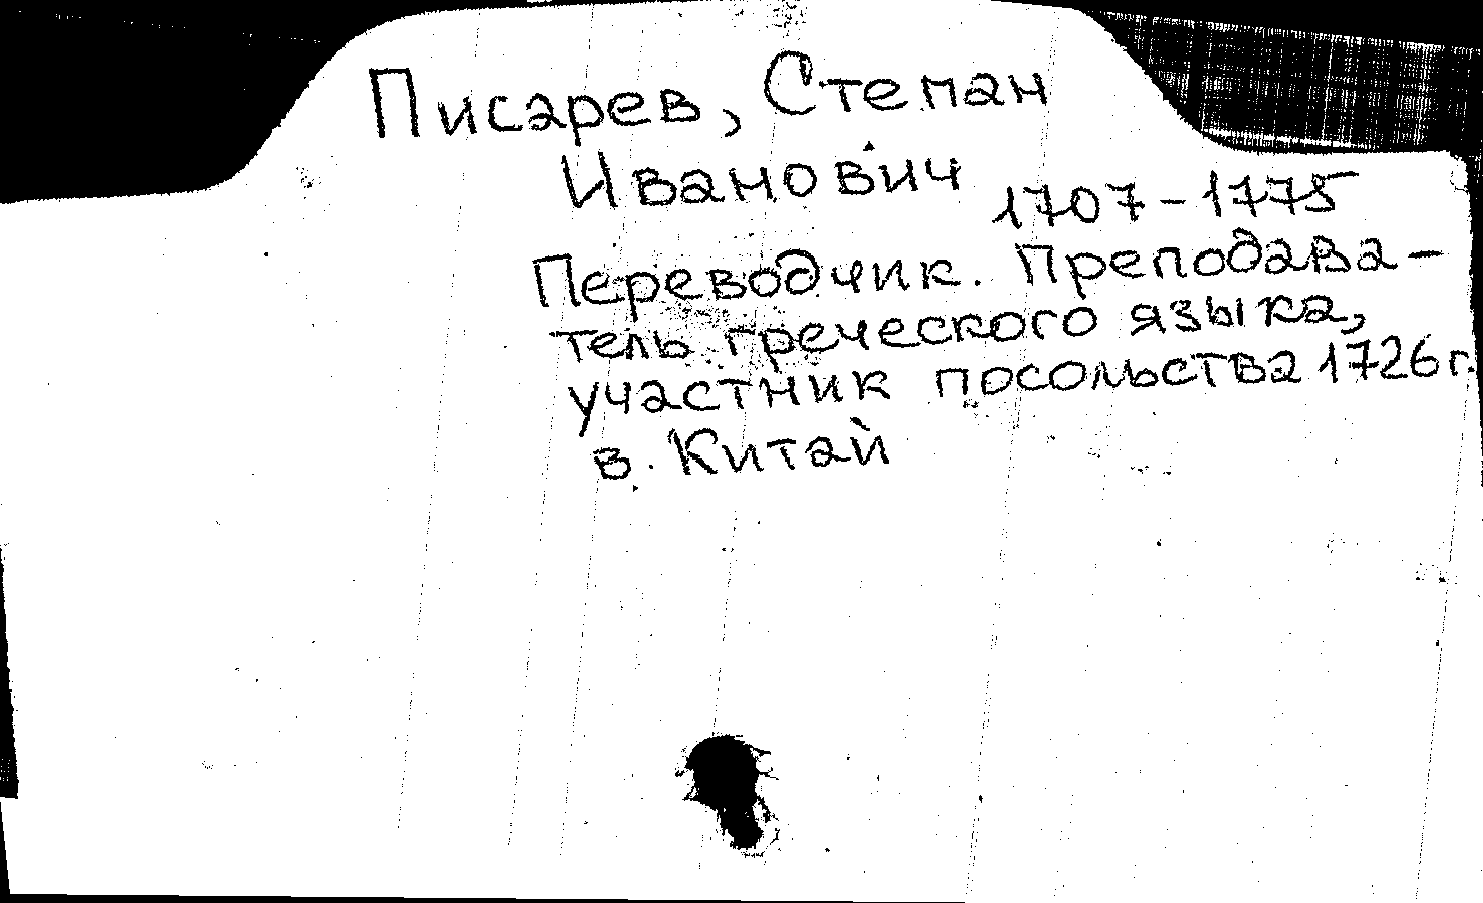 Писарев, Степан
Иванович 1707-1775
Переводчик. Преподава-
тель греческого языка,
участник посольства 1726 г.
в. Китай